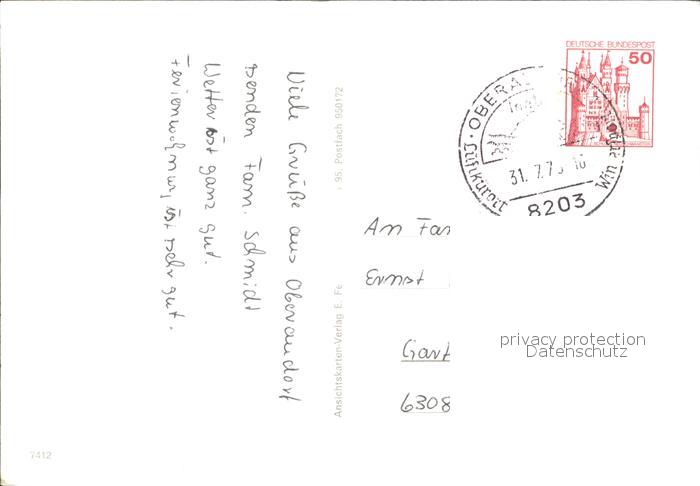 Viele Grüße aus Oberaudorf
senden Fam. Schmidt
Wetter ist ganz gut.
Ferienwohnung ist sehr gut.
Ansichtskarten-Verlag E. Fe
95, Postfach 950172
DEUTSCHE BUNDESPOST
50
OBERA
Luftkurort
31. 7.7
8203
Am Fa
Ernst
Gart
6308
privacy protection
Datenschutz
7412